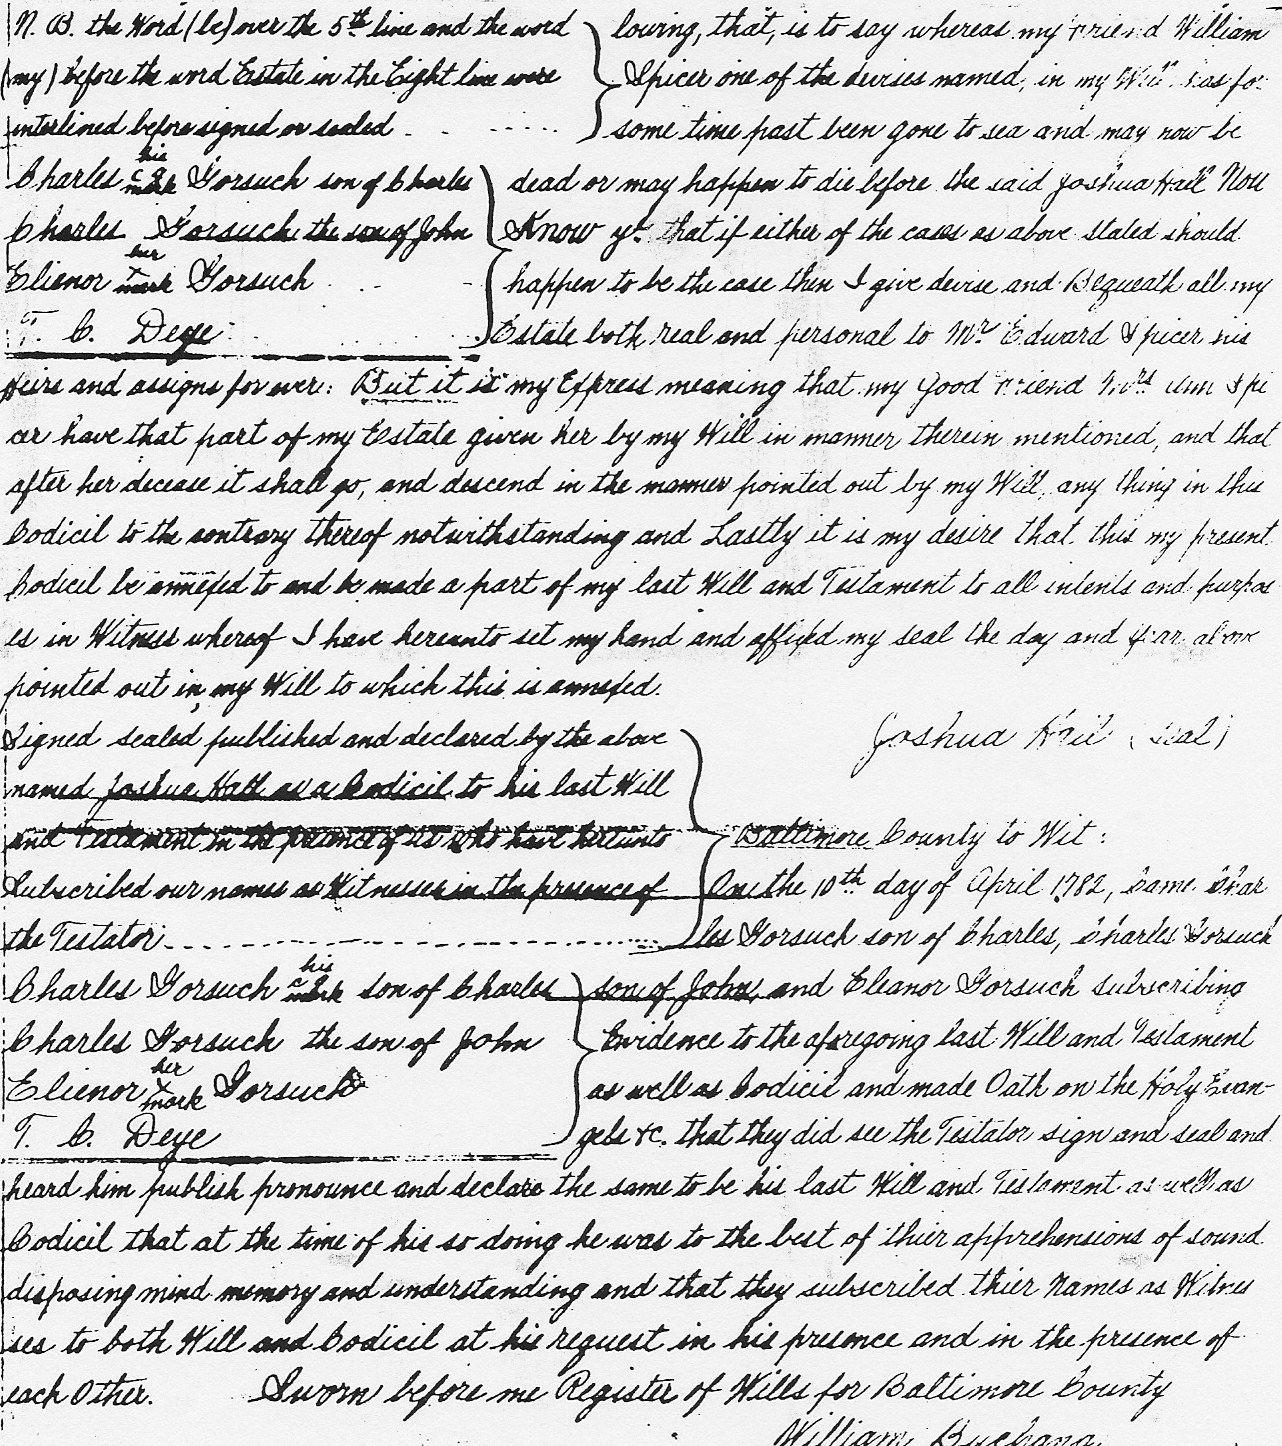 N. B. the Word (le) over the 5th line and the word
(my) before the word Estate in the Eight line were
interlined before signed or sealed
his
Charles C G Gorsuch son of Charles
mark
Charles Gorsuch the son of John
her
Elienor + Gorsuch
mark
T. C. Deye
lowing, that, is to say whereas my Friend William
Spicer one of the devises named, in my Will has for
some time past been gone to sea and may now be
dead or may happen to die before the said Joshua Hall Now
Know ye that if either of the cases as above stated should
happen to be the case then I give devise and Bequeath all my
Estate both real and personal to Mr. Edward Spicer his
Heirs and assigns for ever: But it is my Express meaning that my Good Friend Mrs Ann Spi
cer have that part of my Estate given her by my Will in manner therein mentioned, and that
after her decease it shall go, and descend in the manner pointed out by my Will, any thing in this
Codicil to the contrary thereof notwithstanding and Lastly it is my desire that this my present
Codicil be annexed to and be made a part of my last Will and Testament to all intents and purpos
es in Witness whereof I have hereunto set my hand and affixed my seal the day and year above
pointed out in my Will to which this is annexed.
Joshua Hall (Seal)
Signed sealed published and declared by the above
named Joshua Hall as a Codicil to his last Will
and Testament in the presence of us who have hereunto
Subscribed our names as Witnesses in the presence of
the Testator
his
Charles Gorsuch C G son of Charles
mark
Charles Gorsuch the son of John
her
Elienor + Gorsuch
mark
T. C. Deye
Baltimore County to Wit:
On the 10th day of April 1782, Came Char
les Gorsuch son of Charles, Charles Gorsuch
son of John, and Eleanor Gorsuch subscribing
Evidence to the aforegoing last Will and Testament
as well as Codicil and made Oath on the Holy Evan-
gels &c. that they did see the Testator sign and seal and
heard him publish pronounce and declare the same to be his last Will and Testament as well as
Codicil that at the time of his so doing he was to the best of thier apprehensions of sound
disposing mind memory and understanding and that they subscribed thier Names as Witnes
ses to both Will and Codicil at his request in his presence and in the presence of
each Other. Sworn before me Register of Wills for Baltimore County
William Buchana